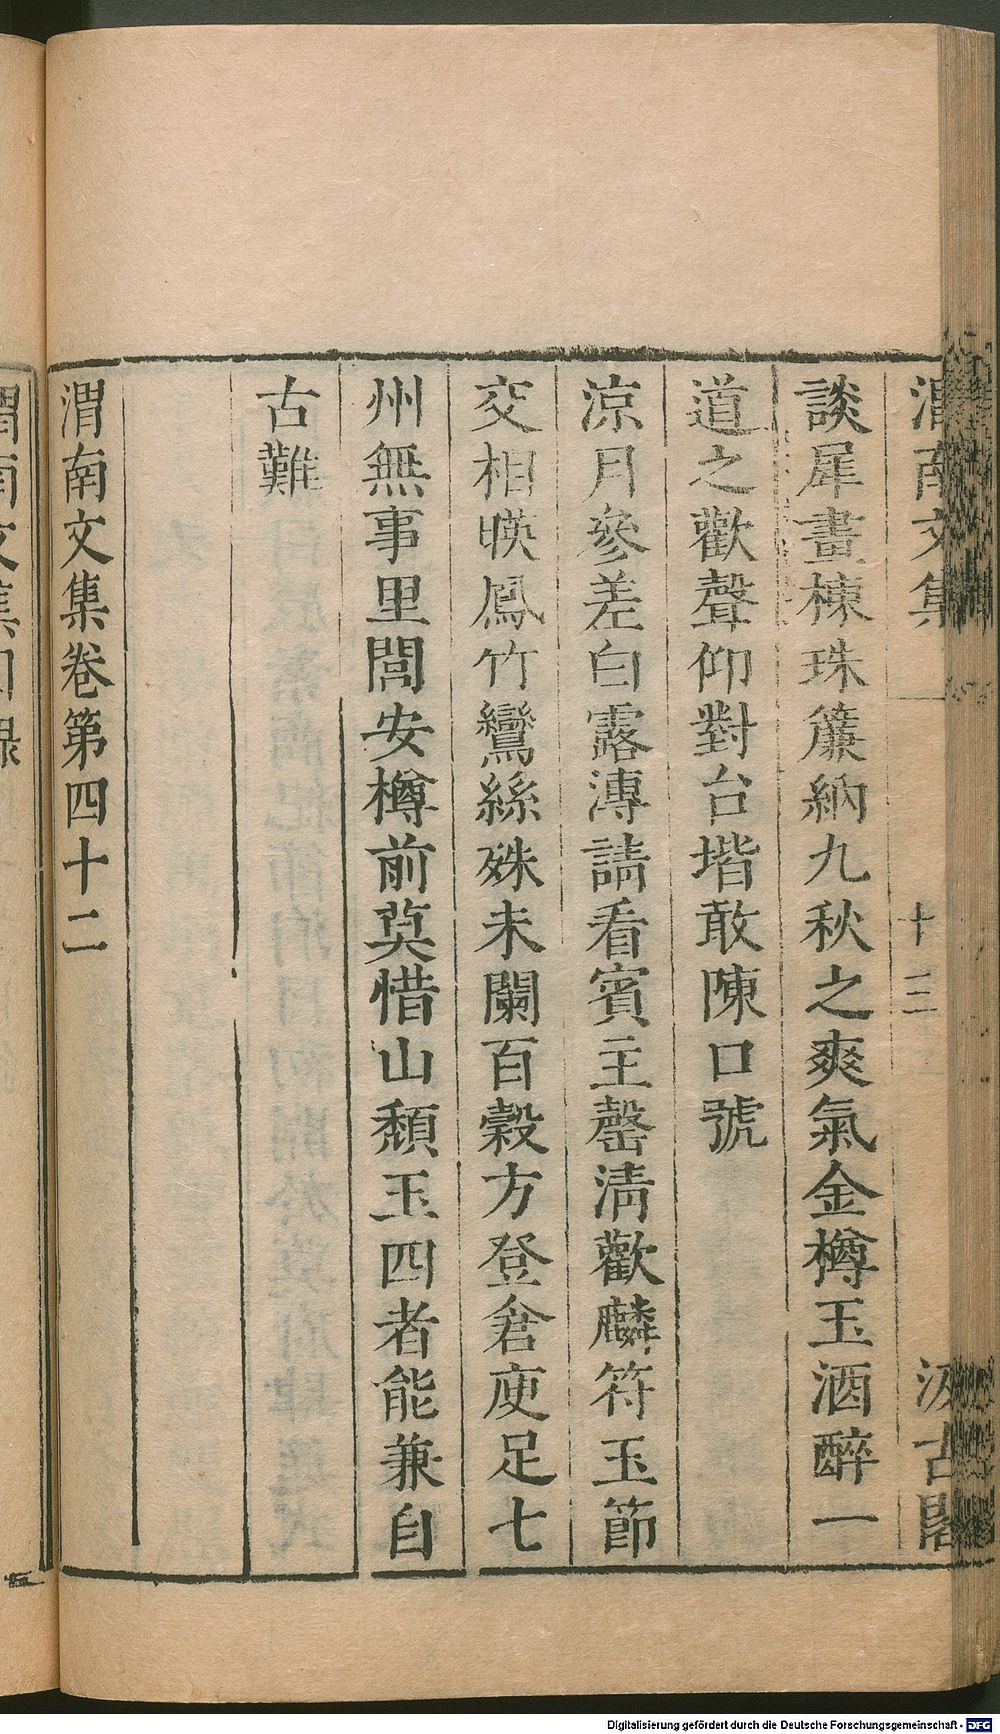 渭南文集 十三 汲古閣
談犀畫棟珠簾納九秋之爽氣金樽玉酒醉一
道之歡聲仰對台堦敢陳口號
涼月參差白露漙請看賓主罄淸歡麟符玉節
交相暎鳳竹鸞絲殊未闌百穀方登倉庾足七
州無事里閭安樽前莫惜山頽玉四者能兼自
古難
渭南文集卷第四十二
Digitalisierung gefördert durch die Deutsche Forschungsgemeinschaft - DFG